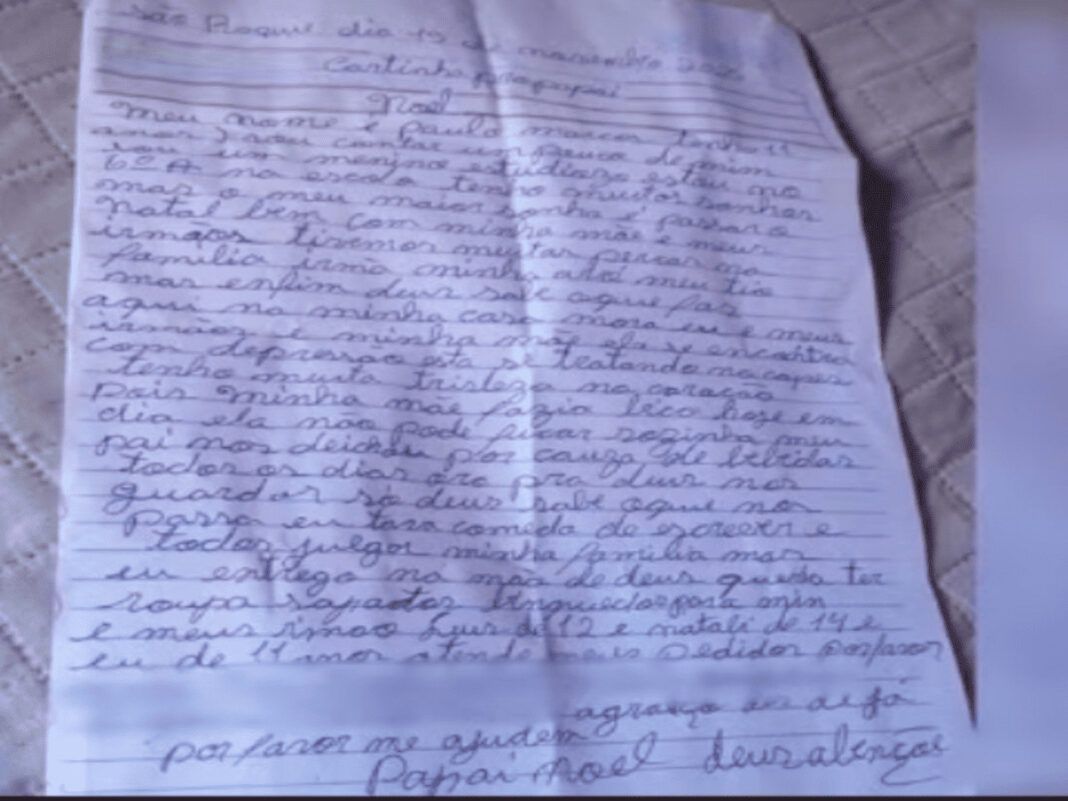 São Roque dia 19 de novembro 2020
Cartinha pra papai
Noel
Meu nome é paulo marcos tenho 11
anos vou contar um pouco de mim
sou um menino estudioso estou no
6º A na escola tenho muitos sonhos
mas o meu maior sonho é passar o
natal bem com minha mãe e meus
irmãos tivemos muitas percas na
familia irmã minha meu tio
mas enfim deus sabe oque faz
aqui na minha casa mora eu e meus
irmãos e minha mãe ela se encontra
com depressão esta se tratando na
tenho muita tristeza no coração
pois minha mãe fazia bico hoze em
dia ela não pode ficar sozinha meu
pai nos deichou por cauza de bebidas
todos os dias óro pra deus nos
guardar só deus sabe oque nos
passa eu tava comedo de escrever e
todos julgor minha familia mas
eu entrego na mão de deus queria ter
roupa sapatos brinquedos para min
e meus irmao Luis de 12 e natali de 14 e
eu de 11 anos atende meus pedidos porfavor
agradeço desde já
porfavor me ajudem
Papai Noel deus abençoe